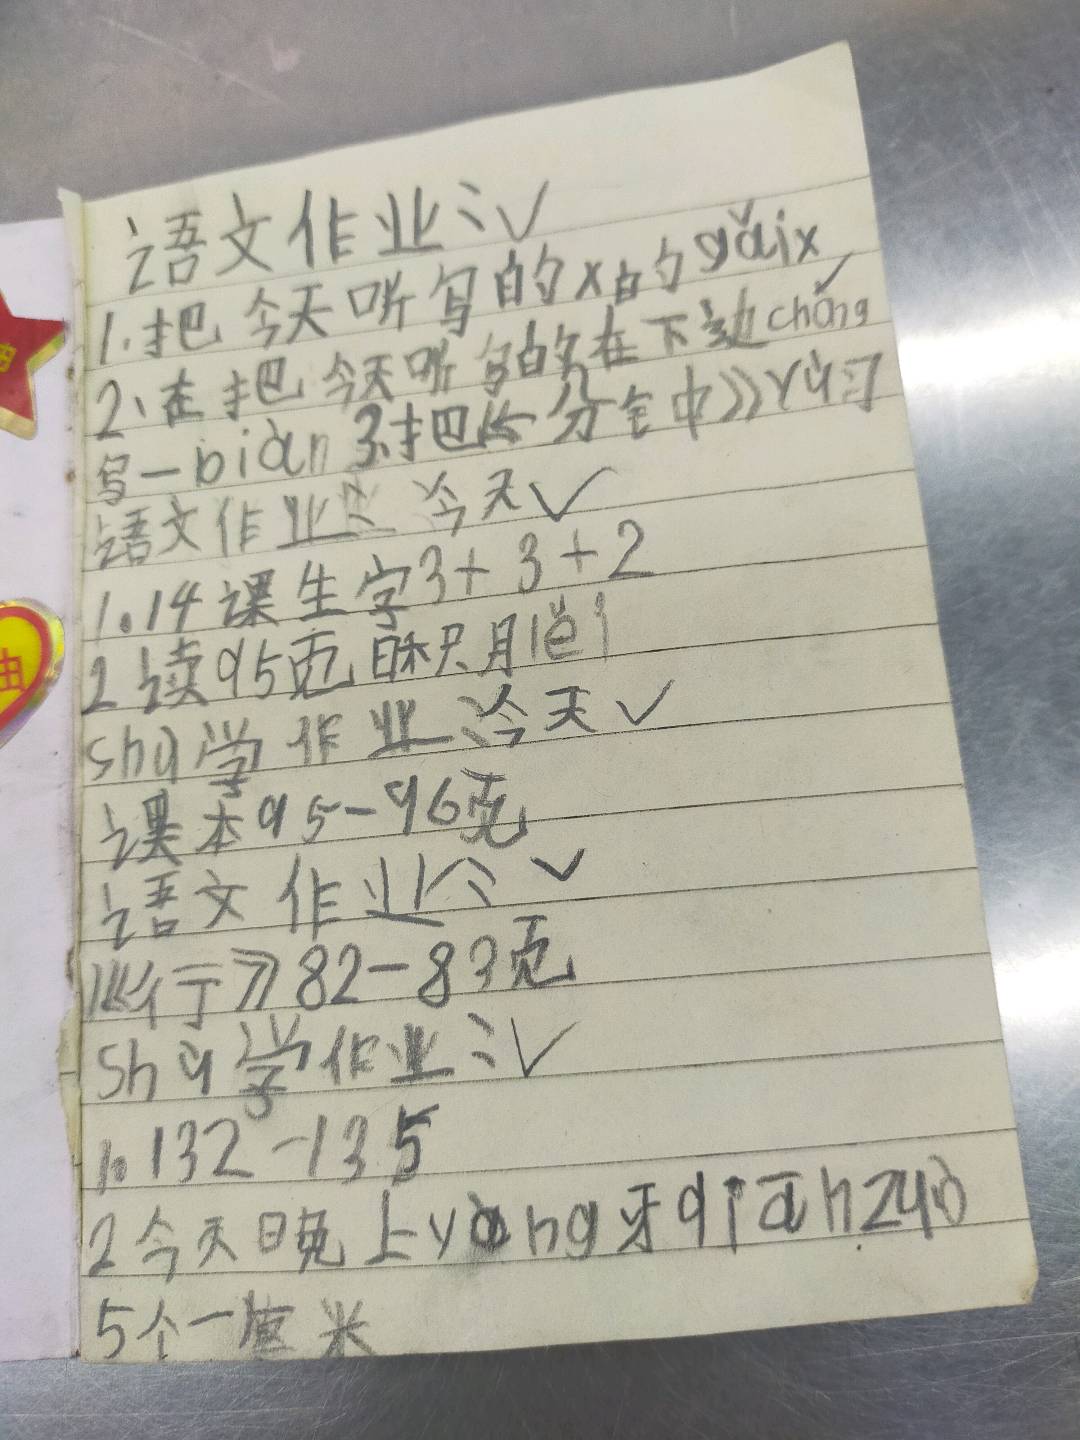 语文作业：✓
1.把今天听写的×的gǎix
2、在把今天听写的在下边chǎng
写一biàn 3.把 分钟中》yù习
语文作业：今天✓
1.14课生字3+3+2
2读95页和只月lěi
shù学作业：今天✓
课本95-96页
语文作业今✓
《行》82-83页
shù学作业：✓
1.132-135
2今天晚上yòng牙qiānzuò
5个一厘米